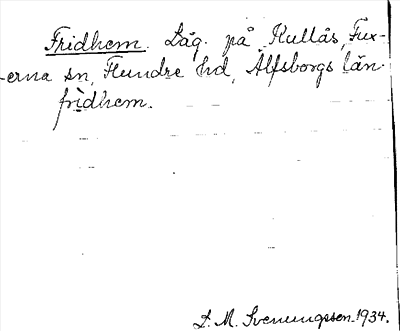 Fridhem. Låg. på Kullås, Fux-
-erna sn, Flundre hd, Älfsborgs län
frìdhem.
S. M. Svenungsson 1934.